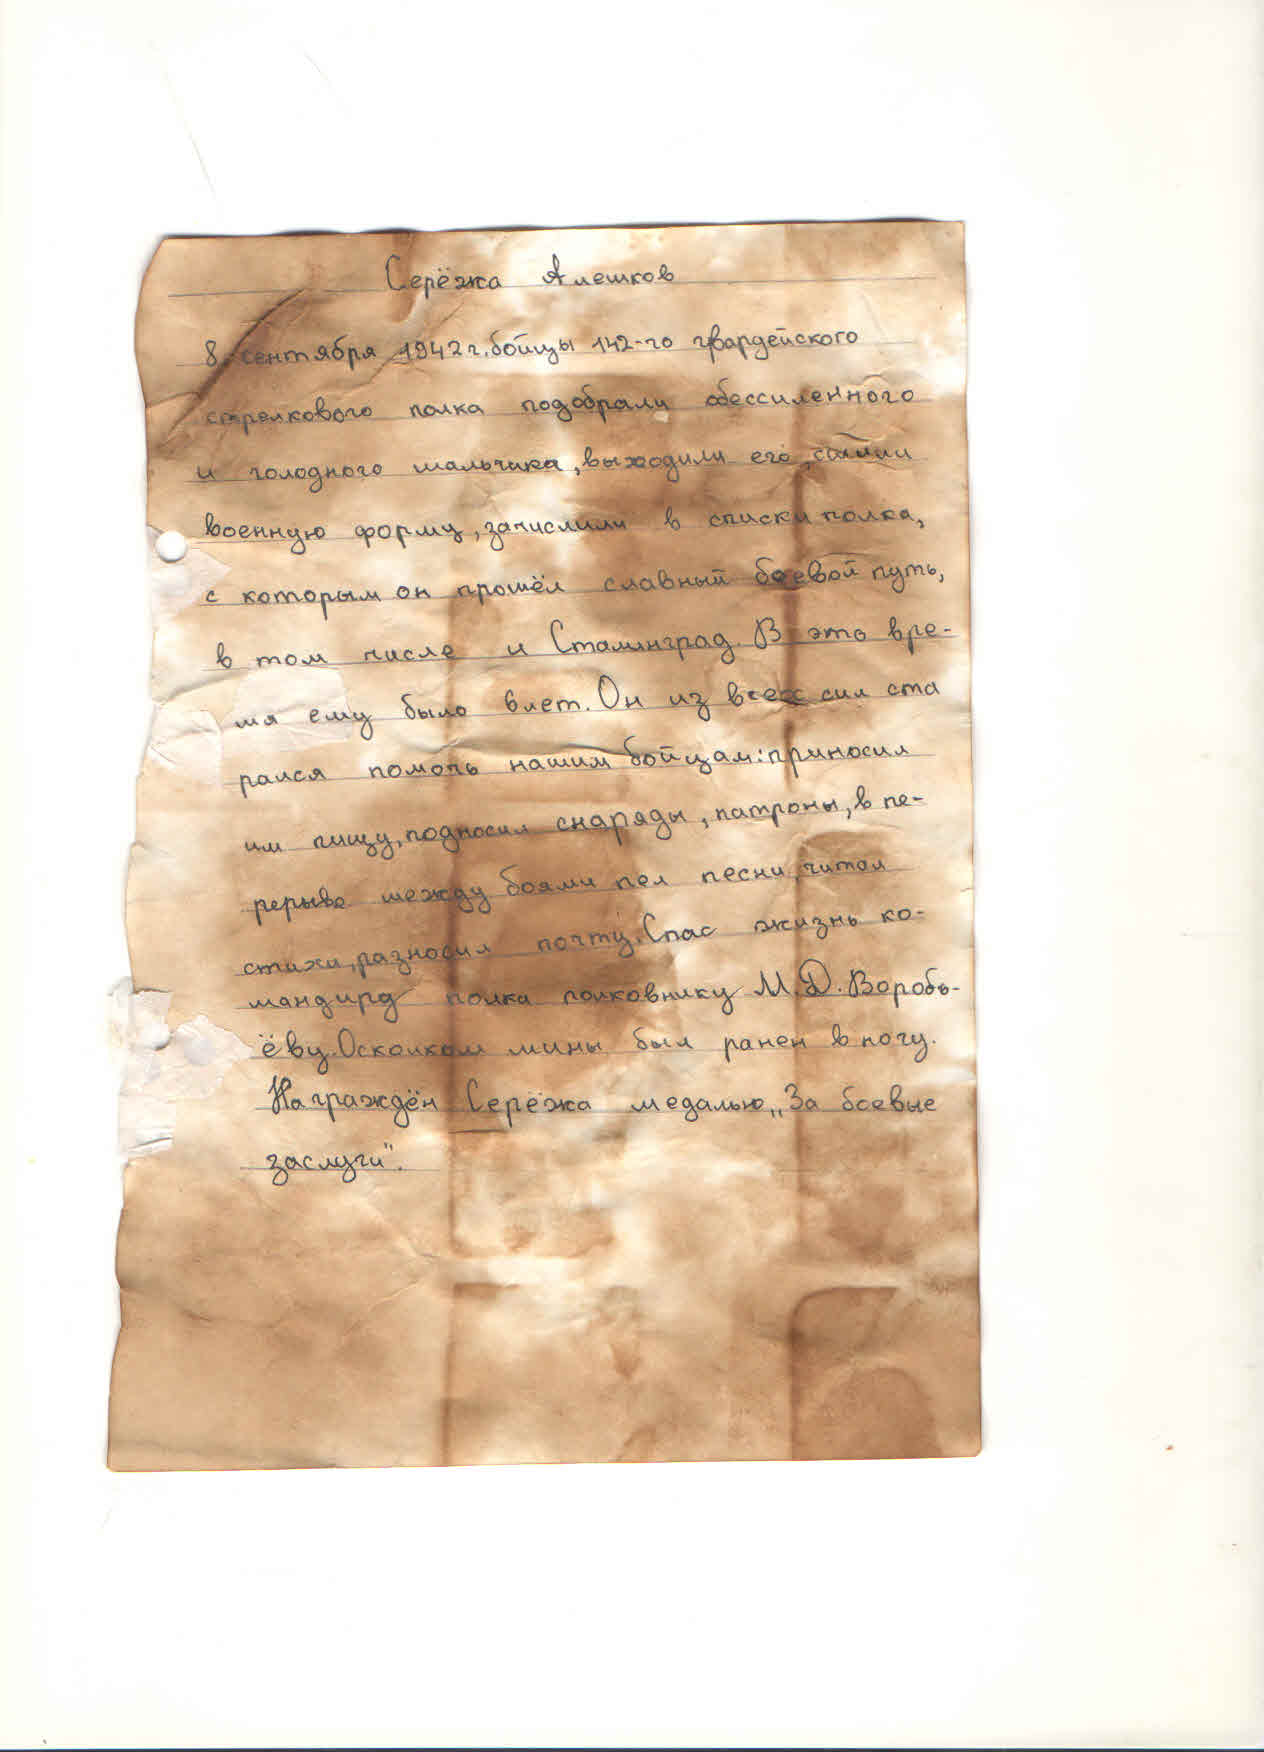 Серёжа Алешков
8 сентября 1942 г. бойцы 142-го гвардейского
стрелкового полка подобрали обессиленного
и голодного мальчика, выходили его, сшили
военную форму, зачислили в списки полка,
с которым он прошёл славный боевой путь,
в том числе и Сталинград. В это вре-
мя ему было 6 лет. Он из всех сил ста
рался помочь нашим бойцам: приносил
им пищу, подносил снаряды, патроны, в пе-
рерыве между боями пел песни, читал
стихи, разносил почту. Спас жизнь ко-
мандиру полка полковнику М.Д. Воробь-
ёву. Осколком мины был ранен в ногу.
Награждён Серёжа медалью „За боевые
заслуги".